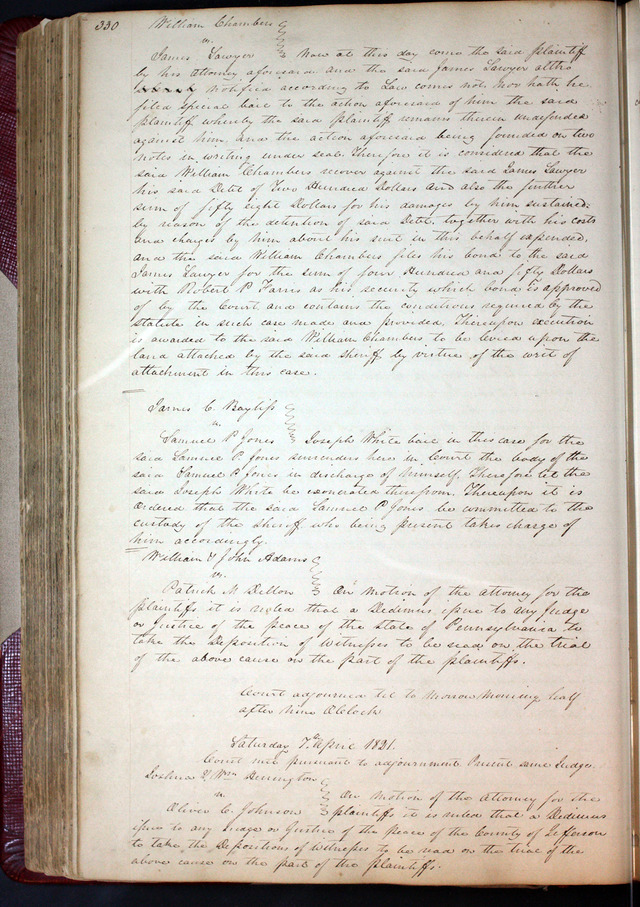 330
William Chambers
vs.
James Lawyer Now at this day come the said plaintiff
by his attorney aforesaid and the said James Lawyer altho
notified according to Law comes not. Nor hath he
filed special bail to the action aforesaid of him the said
plaintiff whereby the said plaintiff remains therein undefended
against him, and the action aforesaid being founded on two
notes in writing under seal. Therefore it is considered that the
said William Chambers recover against the said James Lawyer
his said Debt of Two Hundred Dollars and also the further
sum of fifty eight Dollars for his damages by him sustained
by reason of the detention of said Debt, together with his costs
and charges by him about his suit in this behalf expended,
and the said William Chambers files his bond to the said
James Lawyer for the sum of four Hundred and fifty Dollars
with Robert P Farris as his security which bond is approved
of by the Court and contains the conditions required by the
statute in such case made and provided. Thereupon execution
is awarded to the said William Chambers to be levied upon the
land attached by the said sheriff by virtue of the writ of
attachment in this case.
James C. Bayliss
vs.
Samuel P. Jones Joseph White bail in this case for the
said Samuel P. Jones surrenders here in Court the body of the
said Samuel P Jones in discharge of himself. Therefore let the
said Joseph White be exonerated therefrom. Thereupon it is
Ordered that the said Samuel P Jones be committed to the
custody of the sheriff who being present takes charge of
him accordingly.
William & John Adams
vs.
Patrick M Dillon On motion of the attorney for the
plaintiffs it is ruled that a Dedimus issue to any Judge
or justice of the peace of the State of Pennsylvania to
take the Deposition of Witnesses to be read on the trial
of the above cause on the part of the plaintiffs.
Court adjourned til to Morrow Morning half
after Nine OClock
Saturday 7th April 1821.
Court met pursuant to adjournment Present same Judge.
Joshua & Wm Berrington
vs.
Oliver C. Johnson On Motion of the Attorney for the
plaintiffs it is ruled that a Dedimus
issue to any Judge or Justice of the peace of the County of Jefferson
to take the Depositions of witnesses to be read on the trial of the
above cause on the part of the plaintiffs.